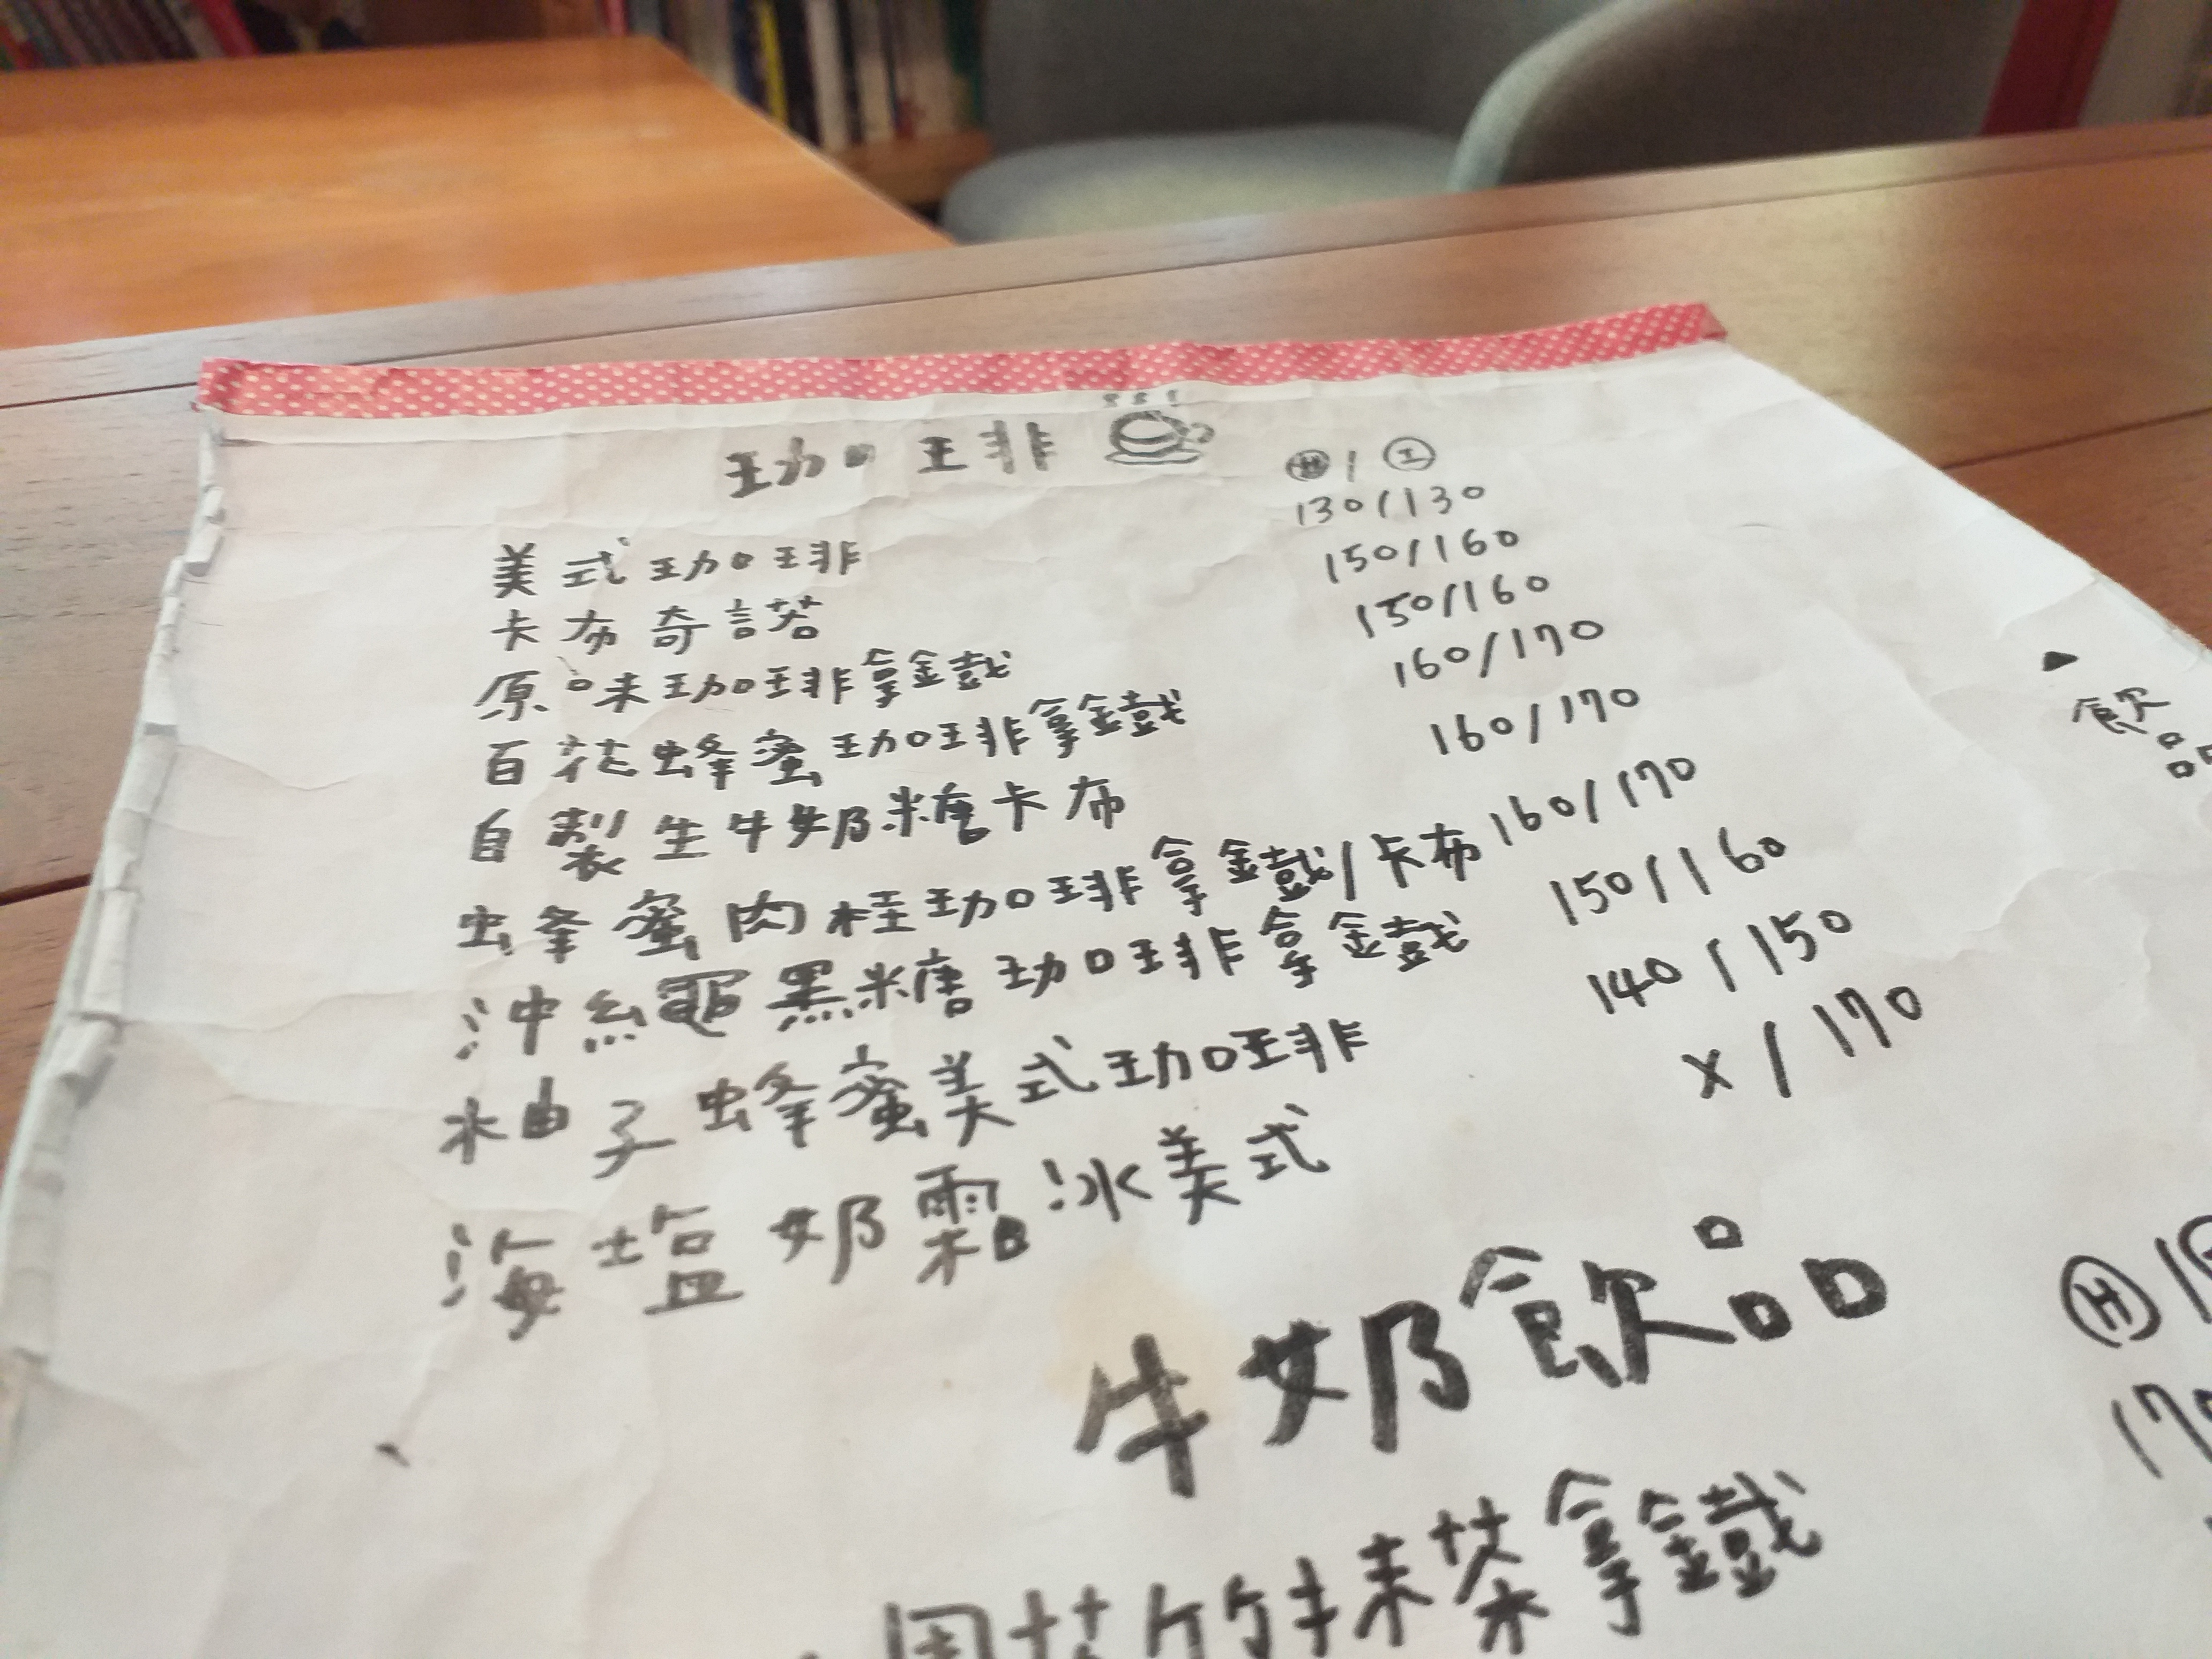 珈琲
Ⓗ / Ⓘ
美式珈琲 130/130
卡布奇諾 150/160
原味珈琲拿鐵 150/160
百花蜂蜜珈琲拿鐵 160/170
自製生牛奶糖卡布 160/170
蜂蜜肉桂珈琲拿鐵/卡布 160/170
沖繩黑糖珈琲拿鐵 150/160
柚子蜂蜜美式珈琲 140/150
海塩奶霜冰美式 x/170
牛奶飲品
Ⓗ /
抹茶拿鐵
飲品